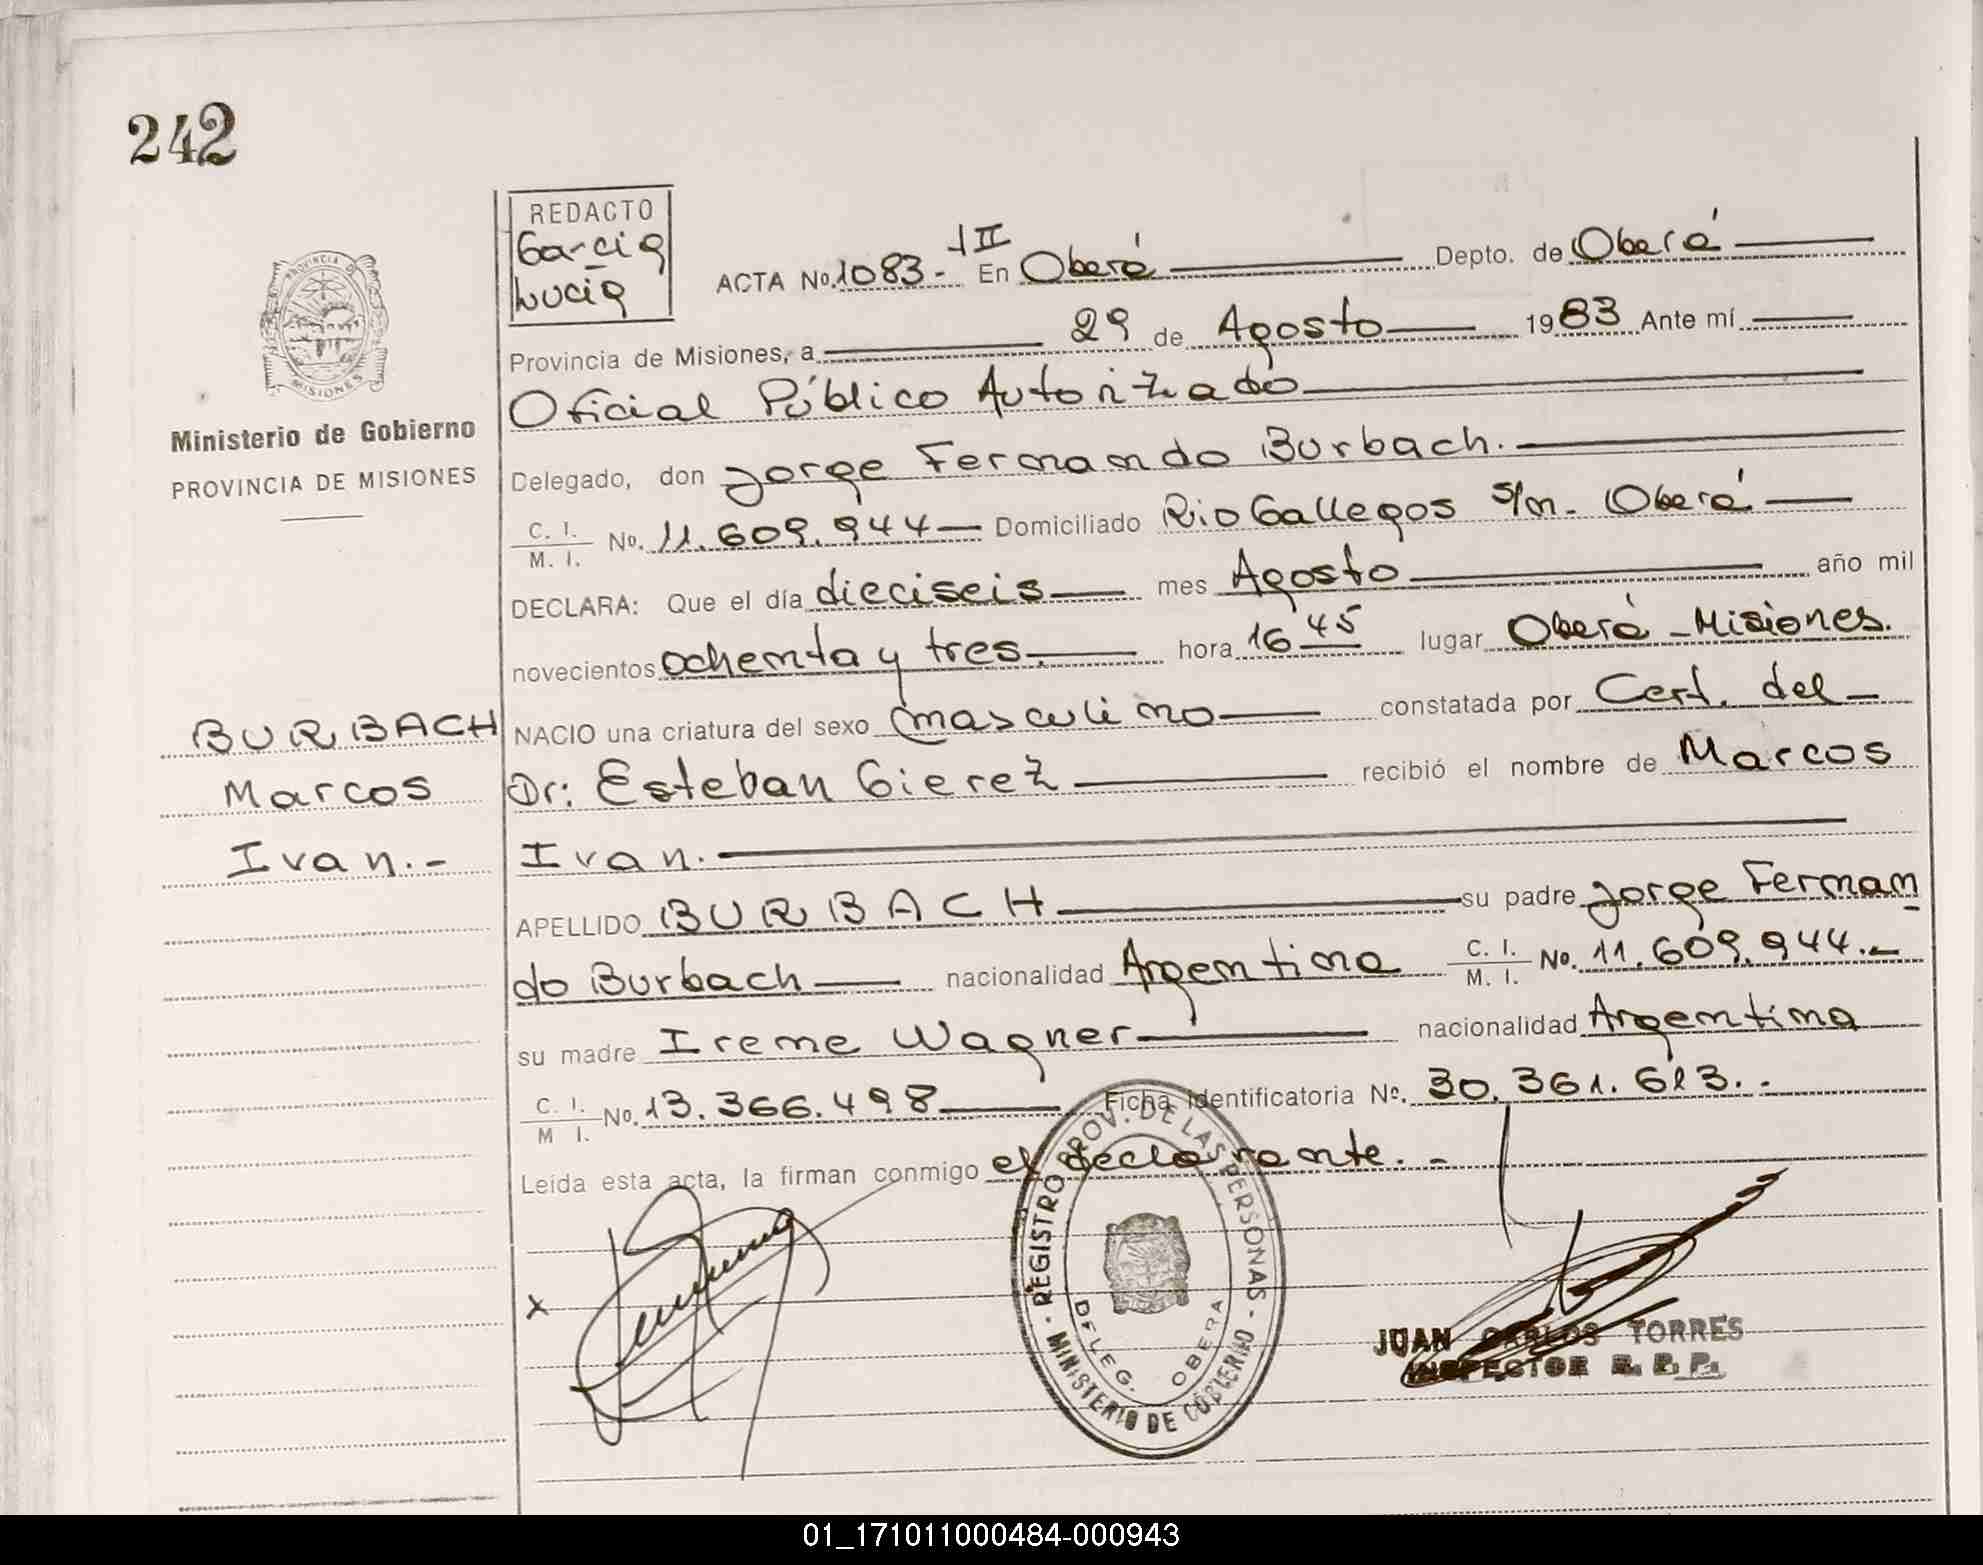 242
REDACTO
Garcia
Lucia
ACTA No. 1083.- tII En Oberá Depto. de Oberá
Provincia de Misiones, a 29 de Agosto 1983 Ante mí
Oficial Público Autorizado
Delegado, don Jorge Fernando Burbach.
C. I. / M. I. No. 11.609.944 Domiciliado Rio Gallegos s/n. Oberá
DECLARA: Que el día dieciseis mes Agosto año mil
novecientos ochenta y tres. hora 16 45 lugar Oberá - Misiones.
NACIO una criatura del sexo masculino constatada por Cert. del
Dr: Esteban Gierez recibió el nombre de Marcos
Ivan.
APELLIDO BURBACH su padre Jorge Fernan
do Burbach nacionalidad Argentina C. I. / M. I. No. 11.609.944.-
su madre Irene Wagner nacionalidad Argentina
C. I. / M I. No. 13.366.498 Ficha Identificatoria No. 30.361.613.-
Leída esta acta, la firman conmigo el declarante.-
PROVINCIA DE
MISIONES
Ministerio de Gobierno
PROVINCIA DE MISIONES
BURBACH
Marcos
Ivan.-
x
REGISTRO PROV. DE LAS PERSONAS - MINISTERIO DE GOBIERNO -
DELEG. OBERA
JUAN CARLOS TORRES
INSPECTOR R. P. P.
01_171011000484-000943